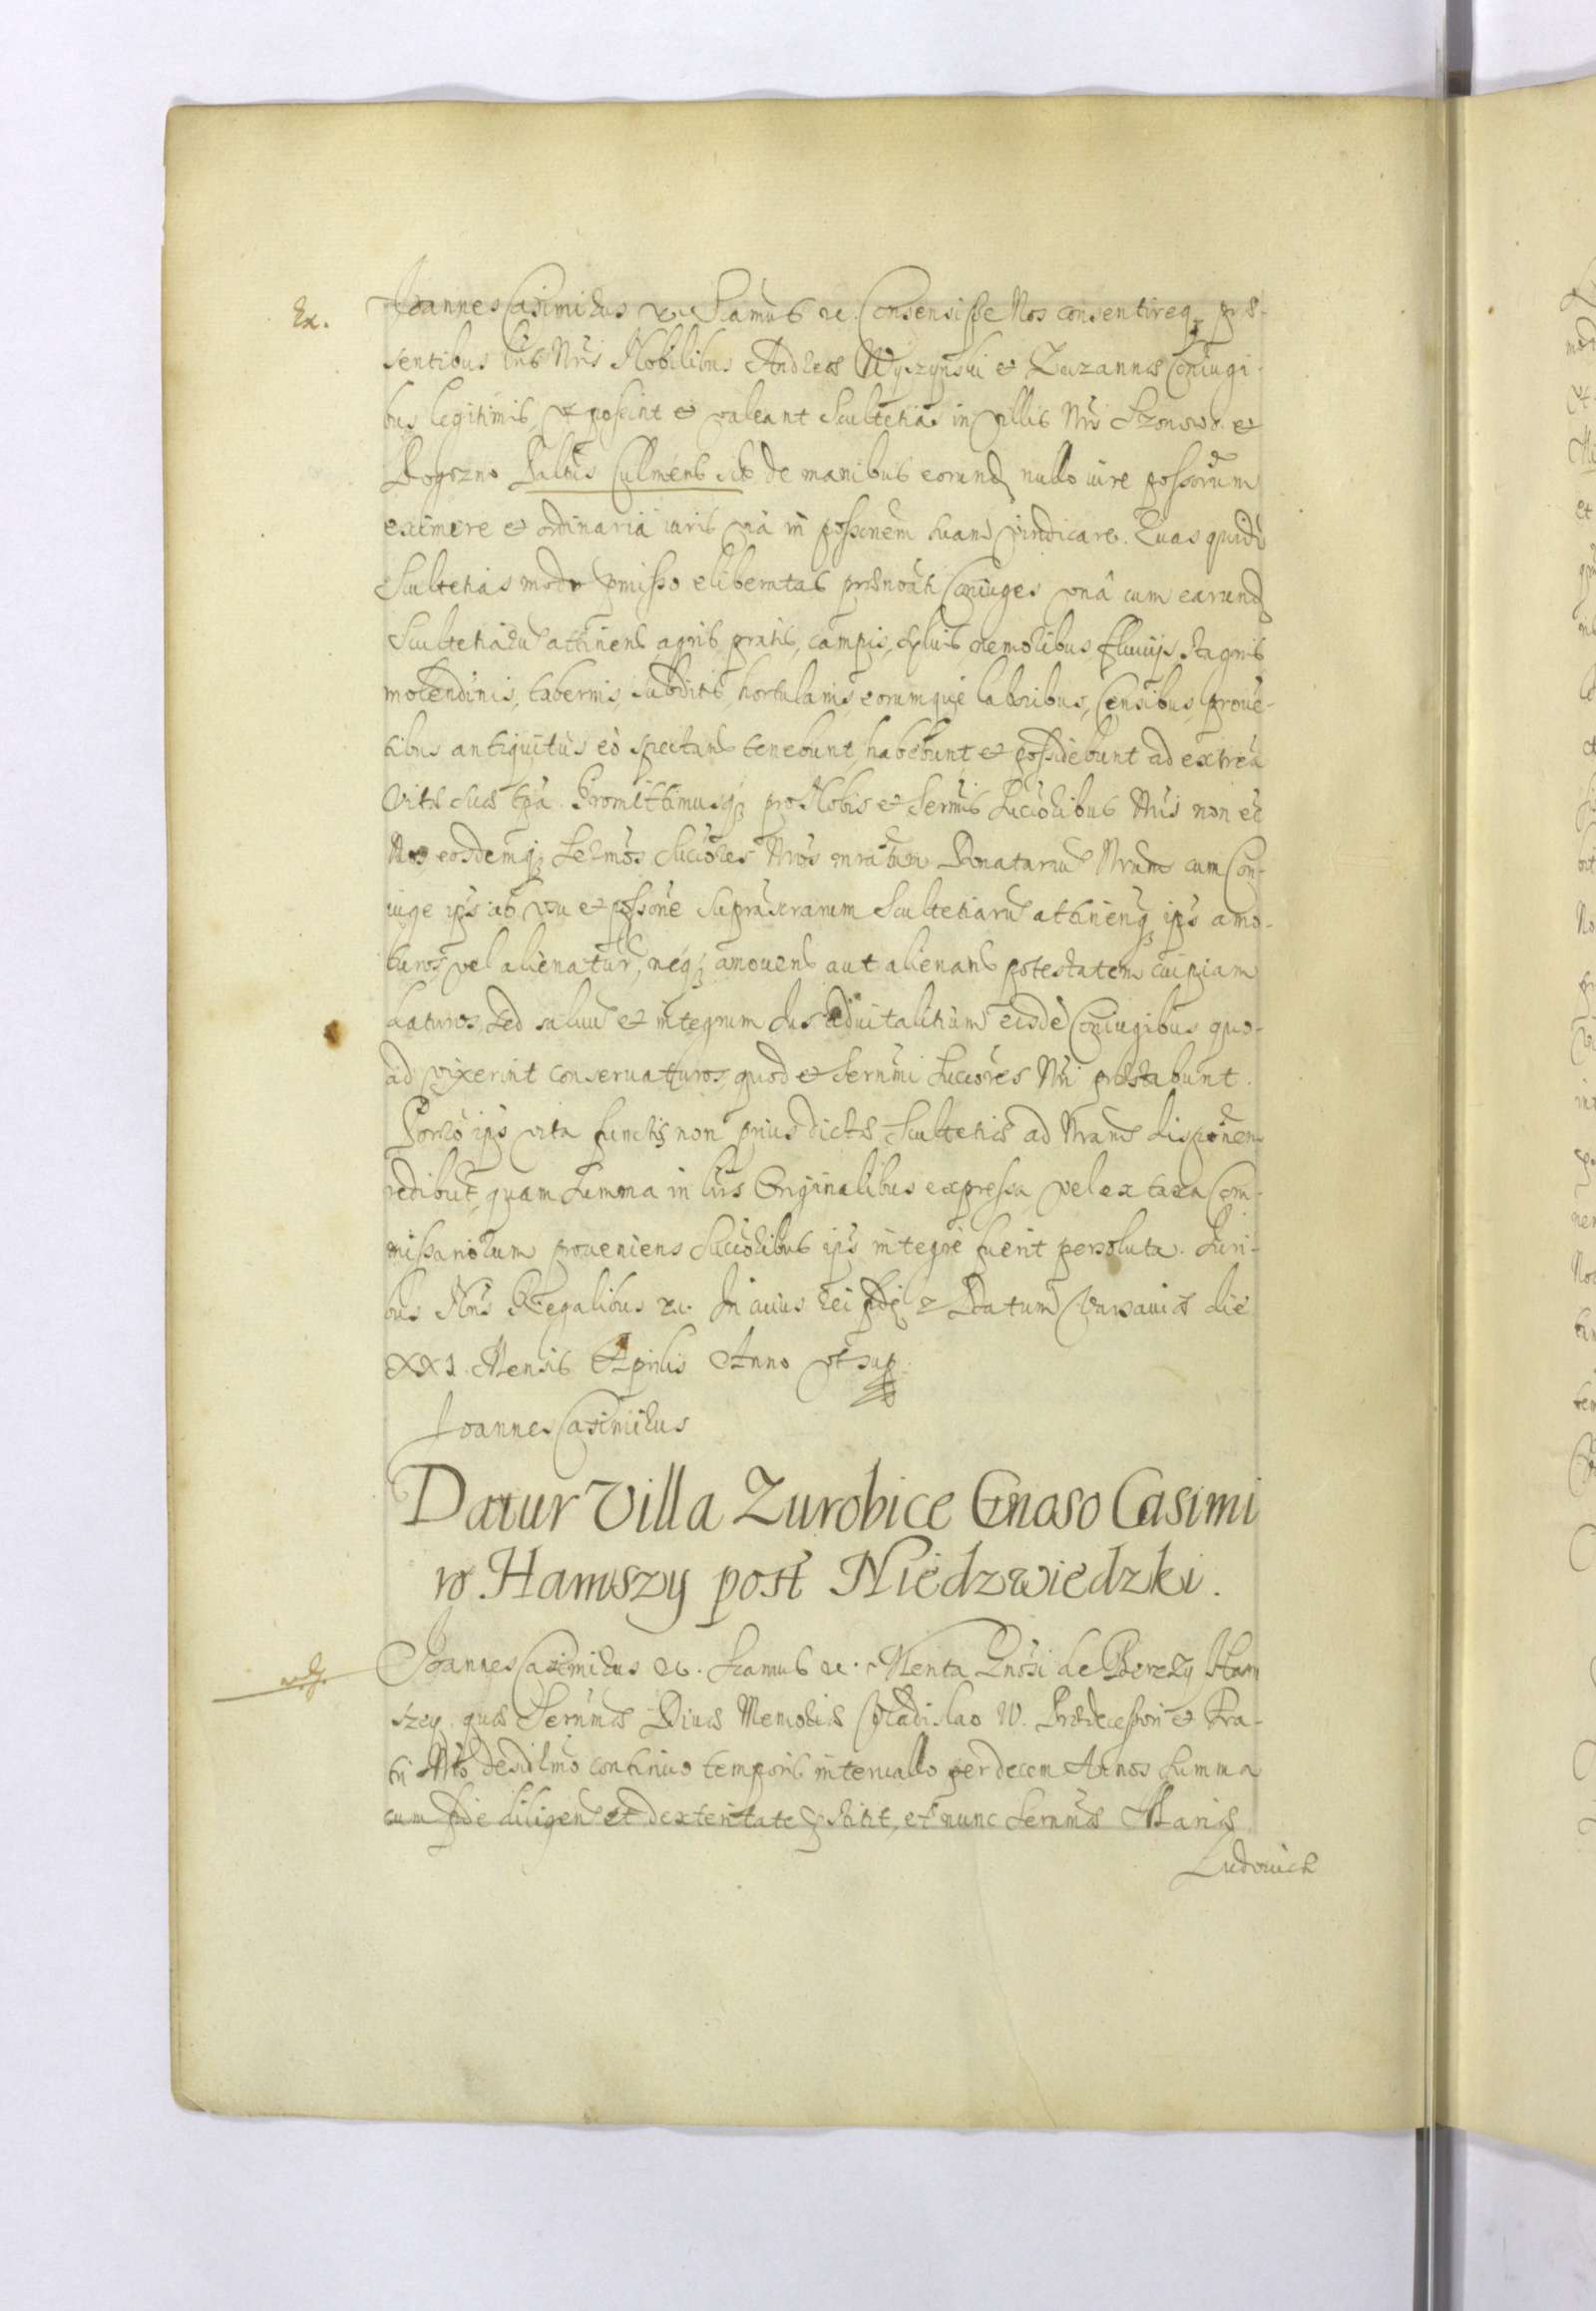 Ex.
Joannes Casimirus &c. Sıamus &c. Consensisse Nos consentireq; præ-
sentibus lris Nris Nobilibus Andreæ Wyszynski et Zuzannæ Coniugi-
bus legitimis, ut possint et valeant Scultetias in Villis Nris et
Pallus Culmens de manibus eorund nullo iure possorum
eximere et ordinaria iuris via in possonem suam vindicare. Quas quidē
Scultetias modo pmisso eliberatas prænoāti Coniuges unâ cum earund
Scultetiarū attinens agris, pratis, campis, sylvis, nemoribus, fluuijs, stagnis
molendinis, tabernis, subditis, hortulanis, eorumque laboribus, Censibus, prove-
tibus antiquitùs eò spectans tenebunt, habebunt et possidebunt ad extrēa
Vitæ suæ tpā. Promittimusq; pro Nobis et Sermis Succōribus Nris non eē
Nos eosdemq; Sermos Succōres Nros mratum Donatariū Nrum cum Con-
iuge ips ab usu et possone suprascrarum Scultetiarū attinenq; ips amo-
turos, vel alienatur, neq; amovens aut alienans potestatem cuipiam
daturos, sed salvū et integrum Jus aduitalitium eisdē Coniugibus quo-
ad vixerint conservatturos, quod et Sernmi Succores Nri præstabunt.
Porrò ips vita functis non prius dictæ Scultetiæ ad Nram disponem
redibūt, quam Summa in lris Originalibus expressa vel ex taxa Com-
missariorum proveniens Succōribus ips integrè fuerit persoluta. Juri-
bus Nris Regalibus &c. In cuius rei fidē &c Datum Varsaviæ die
XXI. Mensis Aprilis Anno ut sup.
Joannes Casimirus
Datur Villa Zurobice Gnoso Casimi
ro Hamszy post Niedzwiedzki.
Joannes Casimirus &c. Sıamus &c. Merita Gnosi de Ham
szey, quæ Sernmo Divæ Memoriæ Vladislao IV. Prædecessori et Fra-
tri Nro desidlmo continuo temporis intervallo per decem Annos summa
cum fide diligen et dexteritate pstitit, et nunc Sernmæ Mariæ
Ludovicæ